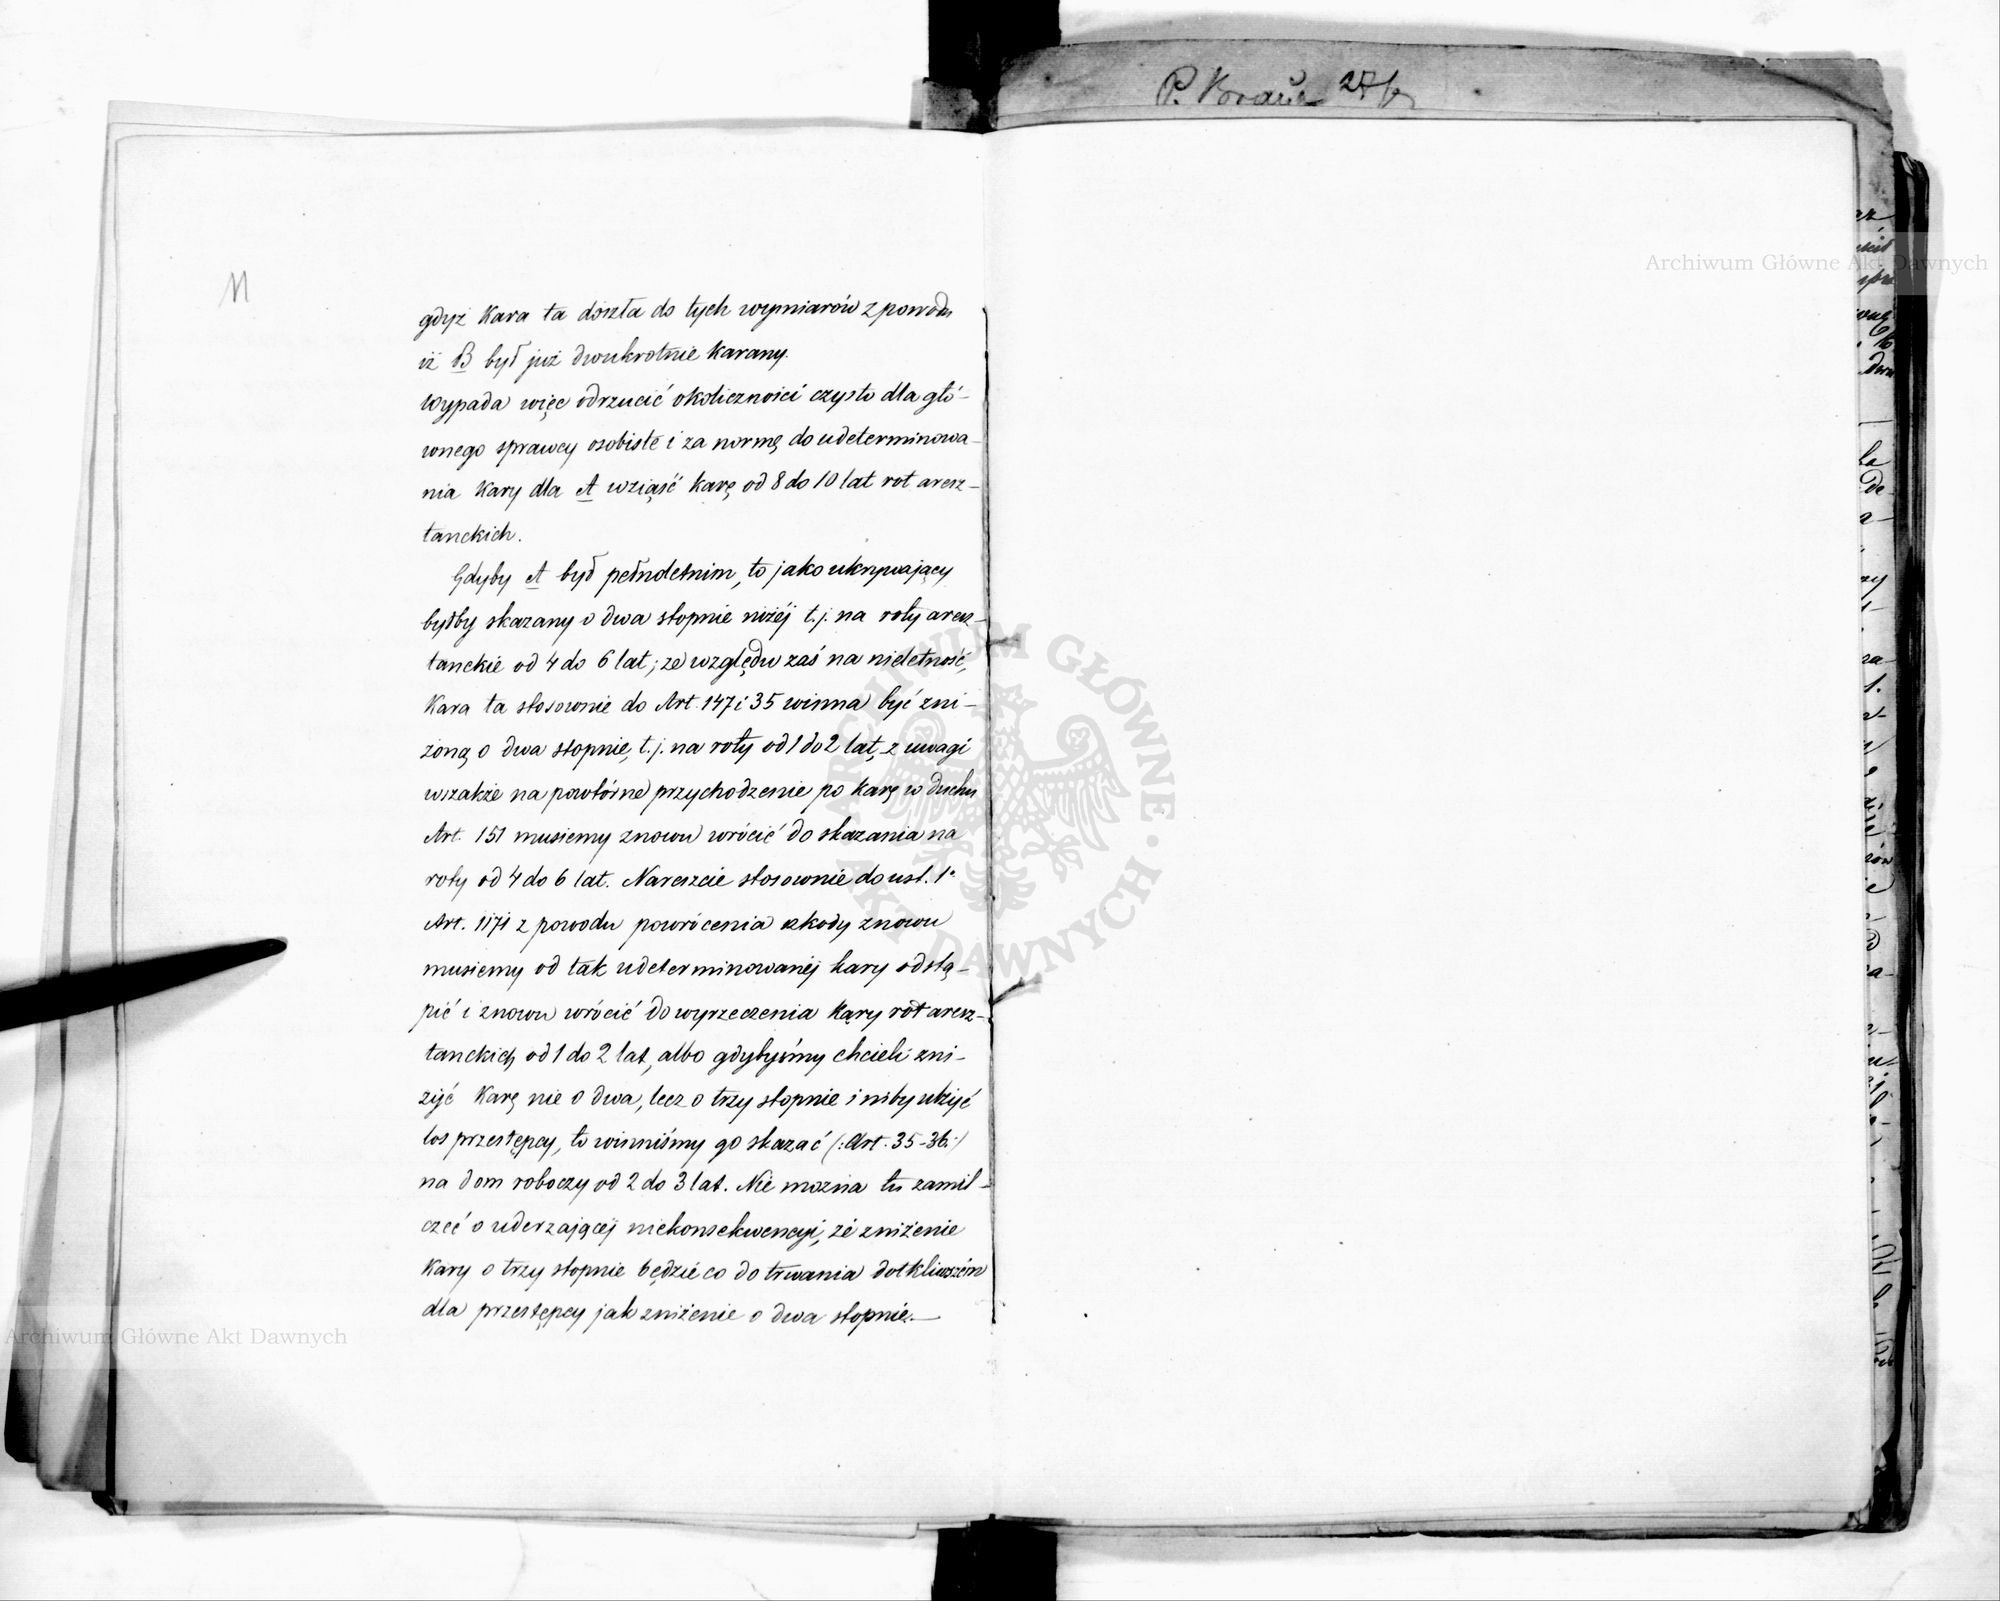 P. Kraus 27/6
11
gdyż Kara ta doszła do tych wymiarów z powodu
iż B był już dwukrotnie Karany.
Wypada więc odrzucić okoliczności czysto dla głó-
wnego sprawcy osobiste i za normę do udeterminowa-
nia Kary dla A wziąść karę od 8 do 10 lat rot aresz-
tanckich.
Gdyby A był pełnoletnim, to jako ukrywający
byłby skazany o dwa stopnie niżéj t. j. na roty aresz-
tanckie od 4 do 6 lat; ze względu zaś na nieletność,
Kara ta stosownie do Art. 147 i 35 winna być zni-
żoną o dwa stopnie, t. j. na roty od 1 do 2 lat, z uwagi
wszakże na powtórne przychodzenie po Karę w duchu
Art. 151 musiemy znowu wrócić do skazania na
roty od 4 do 6 lat. Nareszcie stosownie do ust. 1º
Art. 1171 z powodu powrócenia szkody znowu
musiemy od tak udeterminowanéj kary odstą-
pić i znowu wrócić do wyrzeczenia Kary rot aresz-
tanckich od 1 do 2 lat, albo gdybyśmy chcieli zni-
żyć Karę nie o dwa, lecz o trzy stopnie i niby ulżyć
los przestępcy, to winniśmy go skazać (: Art. 35-36 :)
na dom roboczy od 2 do 3 lat. Nie można tu zamil-
czeć o uderzającéj niekonsekwencyi, że zniżenie
Kary o trzy stopnie będzie co do trwania dotkliwszém
dla przestępcy jak zniżenie o dwa stopnie.—
Archiwum Główne Akt Dawnych
Archiwum Główne Akt Dawnych
ARCHIWUM GŁÓWNE AKT DAWNYCH